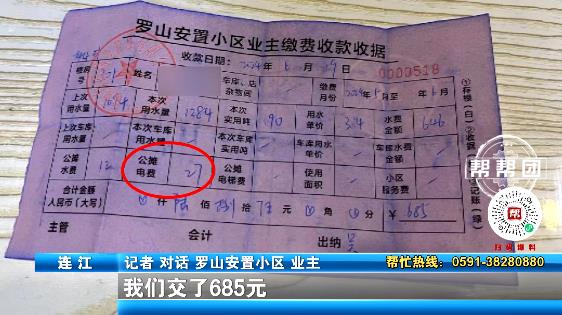 罗山安置小区业主缴费收款收据
收款日期：2024年6月29日
0000518
楼房号 姓名 车库、店杂物间 缴费月份
上次用水量 1094 本次用水量 1284 本次实用吨 190 用水单价 3.4 水费金额 646
上次车库用水量 本次车库用水量 本次车库实用吨 车库用水单价 车库水费金额
公摊水费 12 公摊电费 27 公摊电梯费 使用面积 小区服务费
合计金额人民币（大写） 仟 陆 佰 捌 拾 伍 元 角 分 ￥685
主管 会计 出纳
①存根（白）②收据
记账（绿）
帮帮团
帮
扫码爆料
连江 记者 对话 罗山安置小区 业主 帮忙热线：0591-38280880
我们交了685元